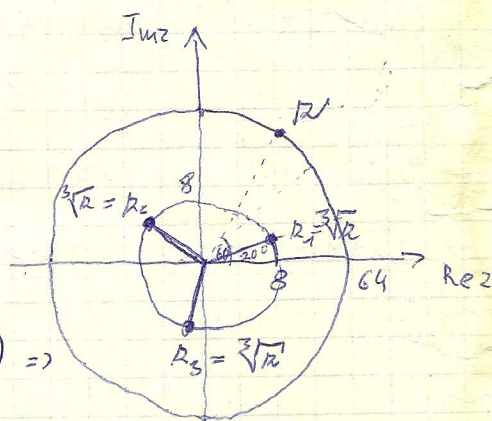 Imz
z
8
∛z = z₂
z₁ = ∛z
60 20°
8
64
Re z
) =>
z₃ = ∛z